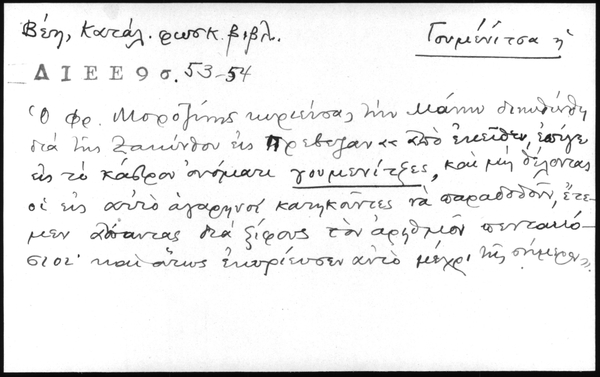 Βέη, Κατάλ. ρωσκ. βιβλ.
Γουμένιτσα ἡ
ΔΙΕΕ 9 σ. 53-54
Ὁ Φρ. Μοροζίνης κυριεύσας τὴν Μάνην διευθύνθη
διὰ τῆς Ζακύνθου εἰς Πρέβεζαν «ἀπὸ ἐκεῖθεν, ἐπῆγε
εἰς τὸ κάστρον ὀνόματι γουμενίτζες, καὶ μὴ θέλοντας
οἱ εἰς αὐτὸ ἀγαρηνοί κατηκοῦντες νὰ παραδοθοῦν, ἔτε-
μεν ἅπαντας διὰ ξίφους τὸν ἀριθμὸν πεντακό-
σιοι· καὶ οὕτως ἐκυρίευσεν αὐτὸ μέχρι τῆς σήμερον».